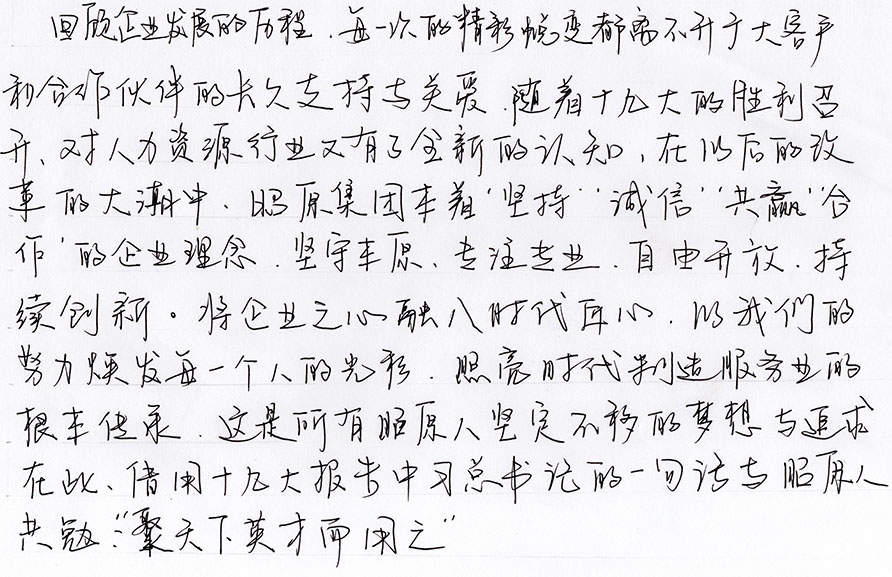 回顾企业发展的历程,每一次的精彩蜕变都离不开于大客户
和合作伙伴的长久支持与关爱,随着十九大的胜利召
开、对人力资源行业又有了全新的认知,在以后的改
革的大潮中,昭原集团本着‘坚持’‘诚信’‘共赢’‘合
作’的企业理念,坚守本原、专注专业、自由开放、持
续创新。将企业之心融入时代匠心,以我们的
努力焕发每一个人的光彩,照亮时代制造服务业的
根本传承,这是所有昭原人坚定不移的梦想与追求
在此、借用十九大报告中习总书记的一句话与昭原人
共勉:“聚天下英才而用之”